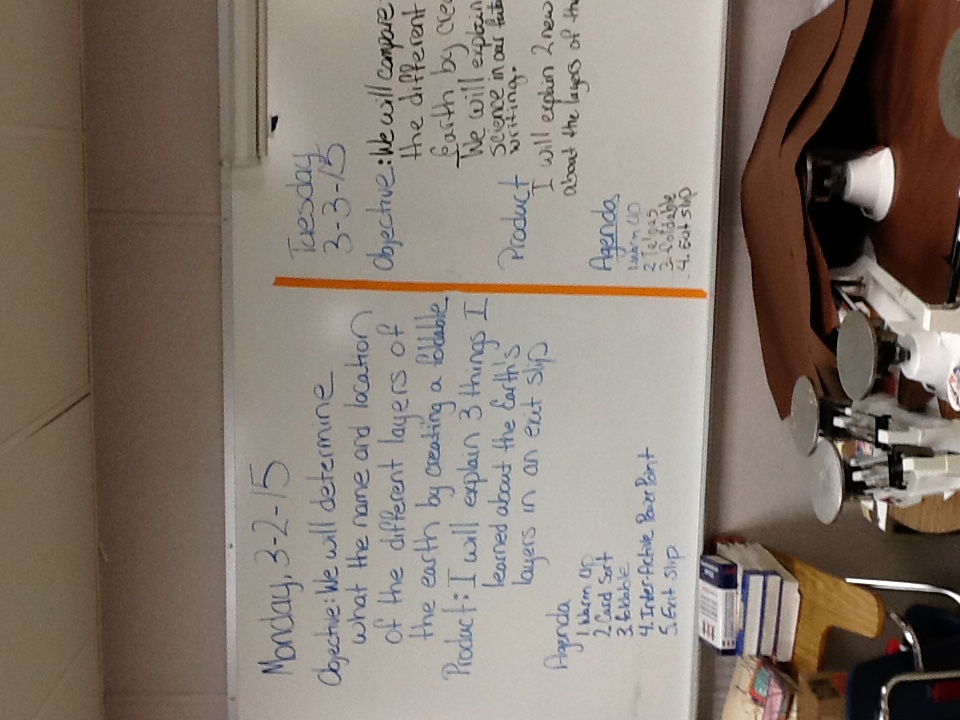 Monday, 3-2-15
Objective: We will determine
what the name and location
of the different layers of
the earth by creating a foldable.
Product: I will explain 3 things I
learned about the Earth's
layers in an exit slip
Agenda
1. Warm up
2. Card Sort
3. foldable
4. Inter-Active PowerPoint
5. Exit Slip
Tuesday
3-3-15
Objective: We will compare
the different
Earth by crea
We will explain
Science in our
writing.
Product
I will explain 2 new
about the layers of the
Agenda
1. Warm up
2 Telpas
3. Foldable
4. Exit Slip